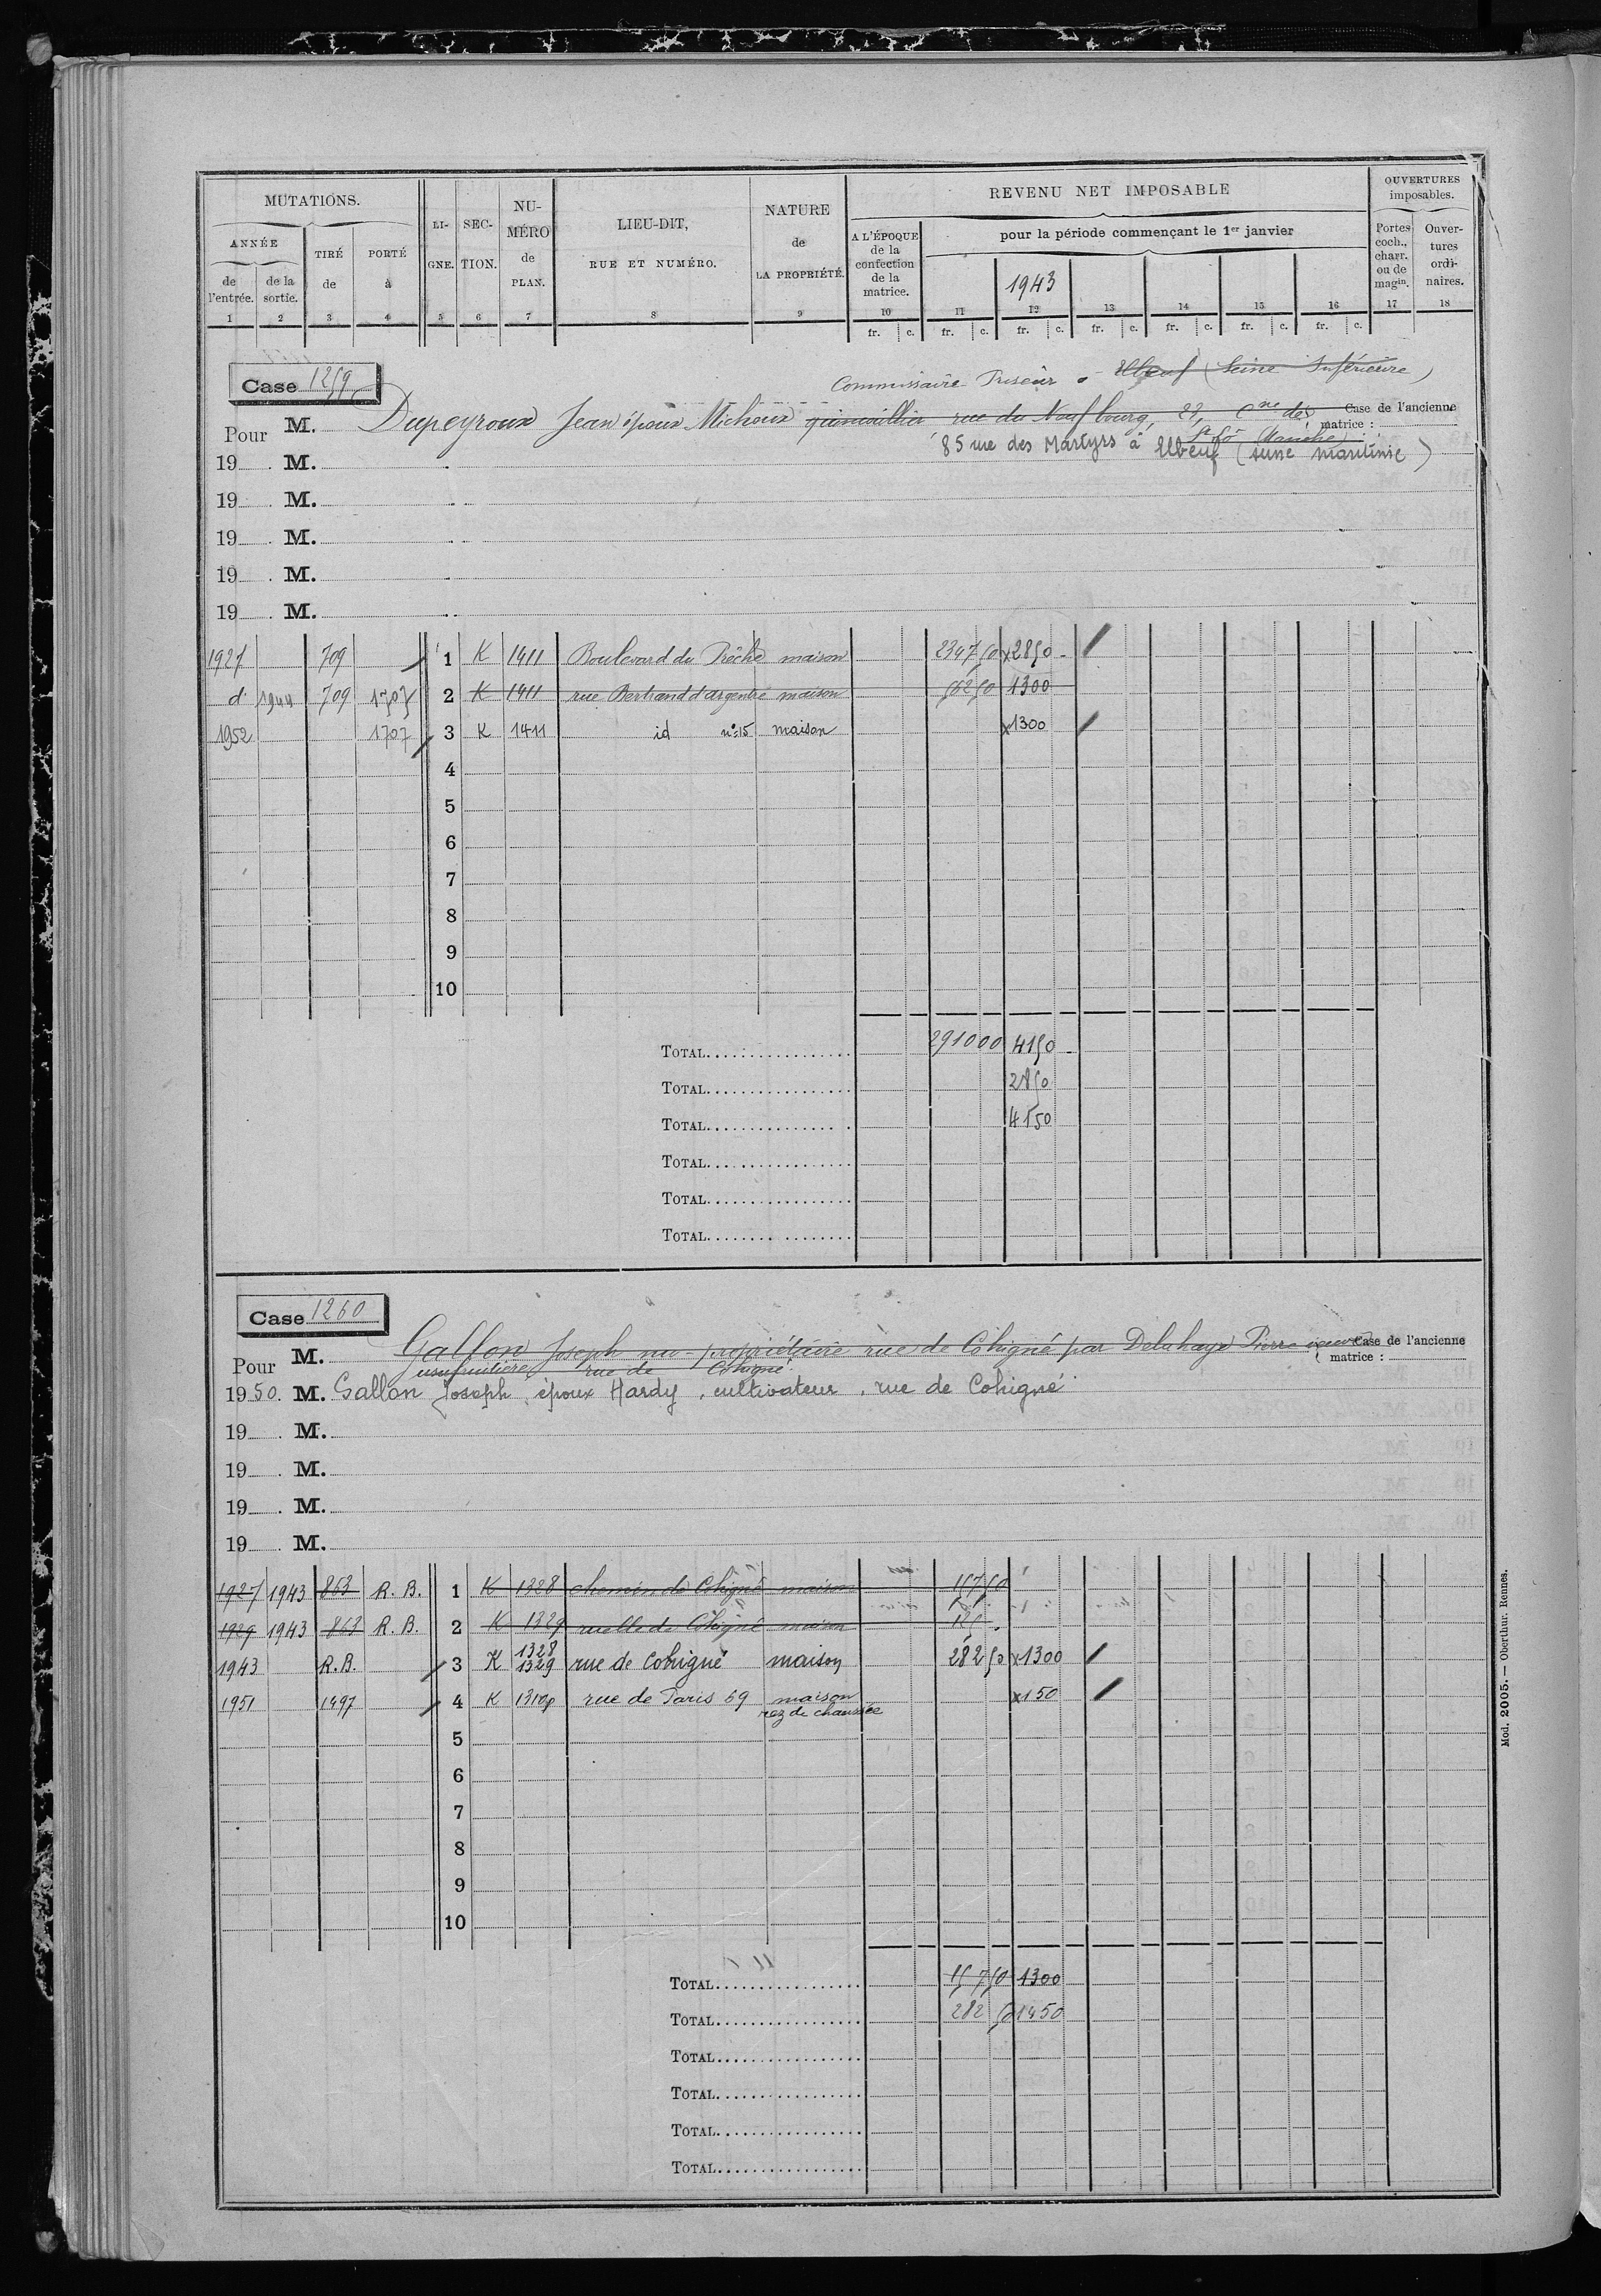 MUTATIONS. LI-GNE. SEC-TION. NU-MÉRO de PLAN. LIEU-DIT, RUE ET NUMÉRO. NATURE de LA PROPRIÉTÉ. REVENU NET IMPOSABLE OUVERTURES imposables.
ANNÉE TIRÉ de PORTÉ à A L'ÉPOQUE de la confection de la matrice. pour la période commençant le 1er janvier Portes coch., charr. ou de magin. Ouver-tures ordi-naires.
de l'entrée. de la sortie. 1943
1 2 3 4 5 6 7 8 9 10 11 12 13 14 15 16 17 18
fr. c. fr. c. fr. c. fr. c. fr. c. fr. c. fr. c.
Case 1259
Commissaire-Priseur à Elbeuf (Seine Inférieure)
Pour M. Dupeyroux Jean époux Michoux rue du Neufbourg, 22, Cne de Case de l'ancienne matrice :
St Lô (Manche)
19 M. 85 rue des Martyrs à Elbeuf (Seine maritime)
19 M.
19 M.
19 M.
19 M.
1927 709 1 K 1411 Boulevard du Prêche maison 2347 50 x2850 -
d° 1944 709 1707 2 K 1411 rue Bertrand d'argentré maison 562 50 1300
1952 1707 3 K 1411 id n°:15 maison x1300
4
5
6
7
8
9
10
TOTAL 2910 00 4150 -
TOTAL 2850
TOTAL 4150
TOTAL
TOTAL
TOTAL
Case 1260
Pour M. Gallon Joseph nu-propriétaire rue de Cohigné par Delahaye Pierre veuve Case de l'ancienne matrice :
usufruitière rue de Cohigné
1950. M. Gallon Joseph, époux Hardy, cultivateur, rue de Cohigné
19 M.
19 M.
19 M.
19 M.
1927 1943 863 R. B. 1 K 1328 chemin de Cohigné maison 157 50
1929 1943 863 R. B. 2 K 1329 ruelle de Cohigné maison 125 -
1943 R.B. 3 K 1328 1329 rue de Cohigné maison 282 50 x1300
1951 1497 4 K 1310p rue de Paris 69 maison rez de chaussée x150
5
6
7
8
9
10
TOTAL 157 50 1300
TOTAL 282 50 1450
TOTAL
TOTAL
TOTAL
TOTAL
Mod. 2005. — Oberthur. Rennes.